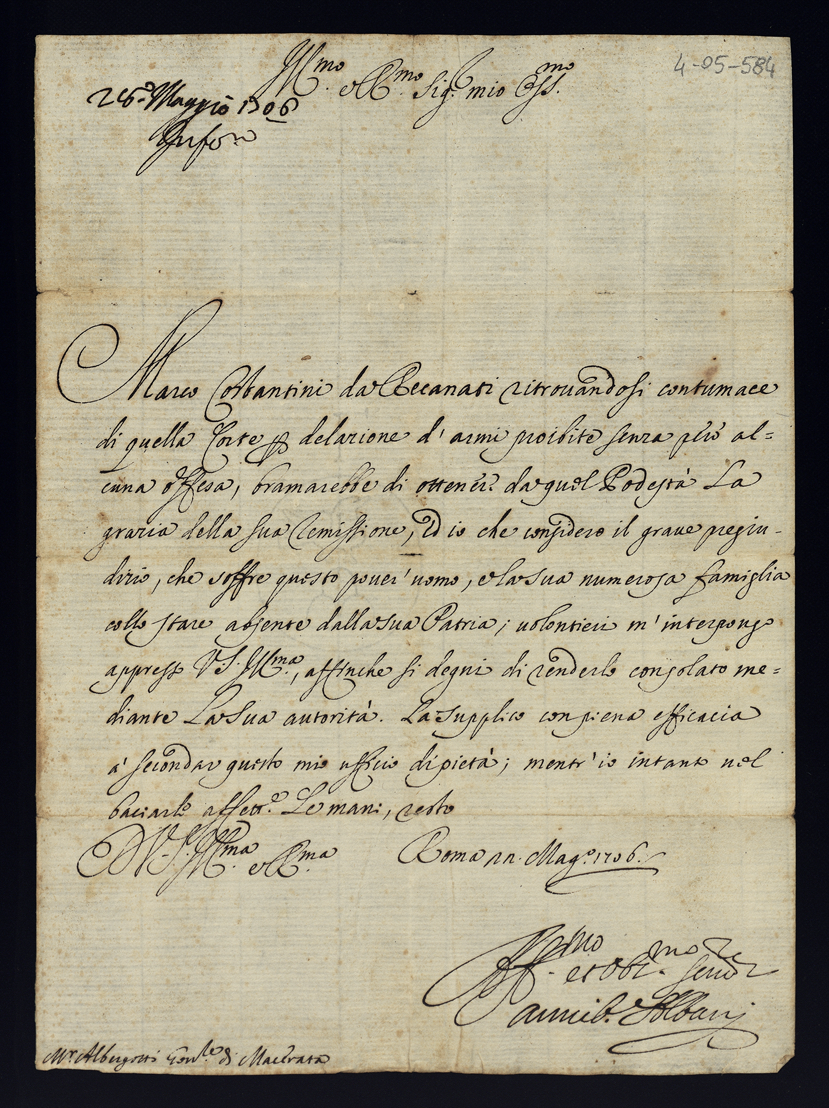 4-05-584
Ill.mo e R.mo Sig.r mio Oss.mo
26. Maggio 1706
Infor.e
Marco Costantini da Recanati ritrouandosi contumace
di quella Corte p delazione d'armi proibite senza però al=
cuna offesa, bramarebbe di ottener da quel Podestà La
grazia della sua remissione, Ed io che considero il graue pregiu-
dizio, che soffre questo pouer'uomo, e la sua numerosa famiglia
collo stare absente dalla sua Patria; uolontieri m'interpongo
appresso V.S. Ill.ma, affinche si degni di renderlo consolato me=
diante La Sua autorità. La supplico con piena efficacia
a' secondar questo mio ufficio di pietà; mentr'io intanto nel
baciarle affett.e Le mani, resto
D V.S. Ill.ma e R.ma Roma 22. Mag.o 1706.
Aff.mo et Obl.mo Seru.re
Annib. Albani
Mr. Albergotti Gou.re di Macerata